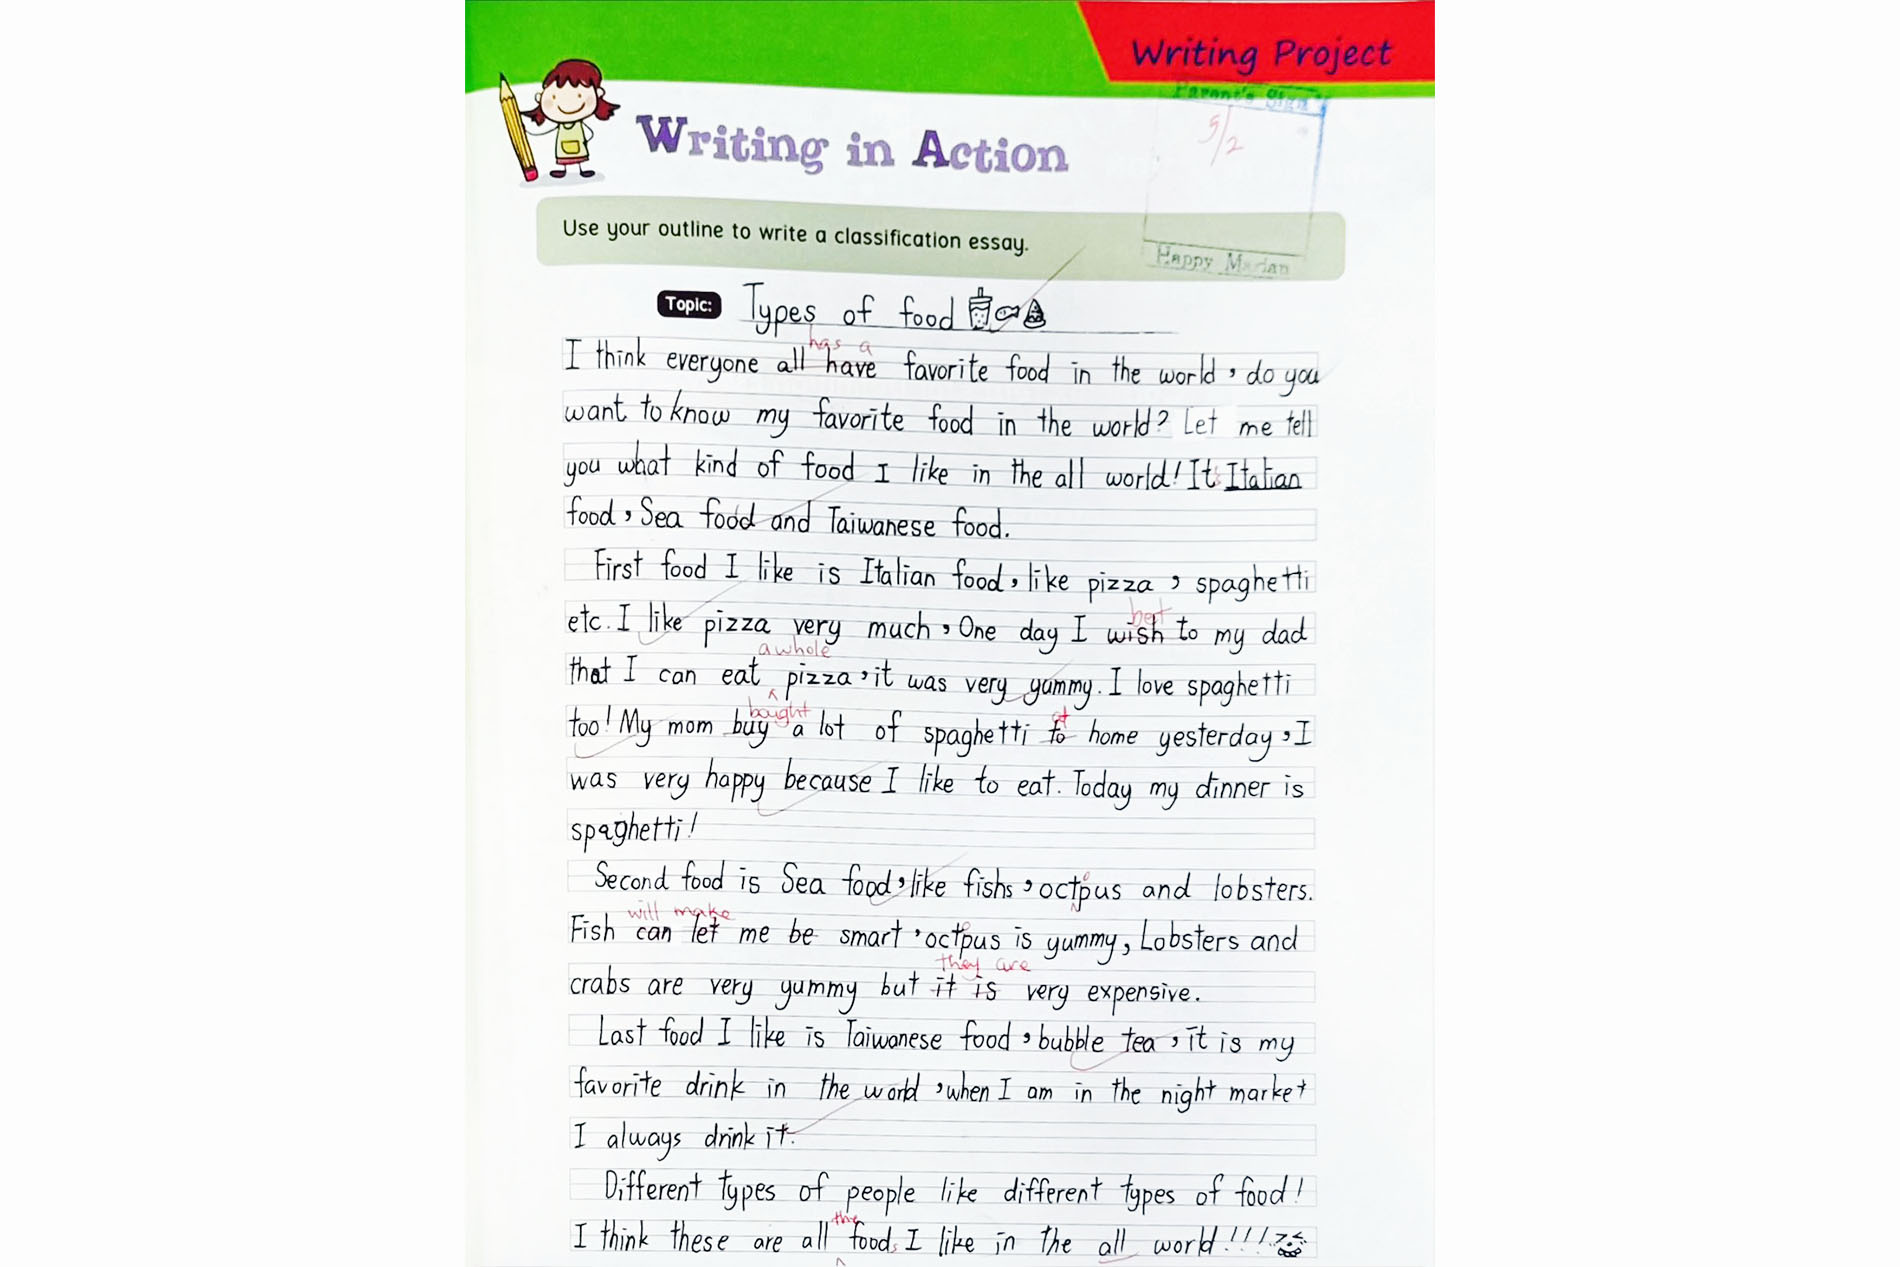 Writing Project
Parent's Sign
5/2
Writing in Action
Use your outline to write a classification essay.
Happy Marian
Topic: Types of food
has a
I think everyone all have favorite food in the world, do you
want to know my favorite food in the world? Let me tell
you what kind of food I like in the all world! It's Italian
food, Sea food and Taiwanese food.
First food I like is Italian food, like pizza, spaghetti
bet
etc. I like pizza very much, One day I wish to my dad
a whole
that I can eat pizza, it was very yummy. I love spaghetti
bought at
too! My mom buy a lot of spaghetti to home yesterday, I
was very happy because I like to eat. Today my dinner is
spaghetti!
Second food is Sea food, like fishs, octpus and lobsters.
o
will make
Fish can let me be smart, octpus is yummy, Lobsters and
they are
crabs are very yummy but it is very expensive.
Last food I like is Taiwanese food, bubble tea, it is my
favorite drink in the world, when I am in the night market
I always drink it.
Different types of people like different types of food!
the
I think these are all foods I like in the all world!!!!